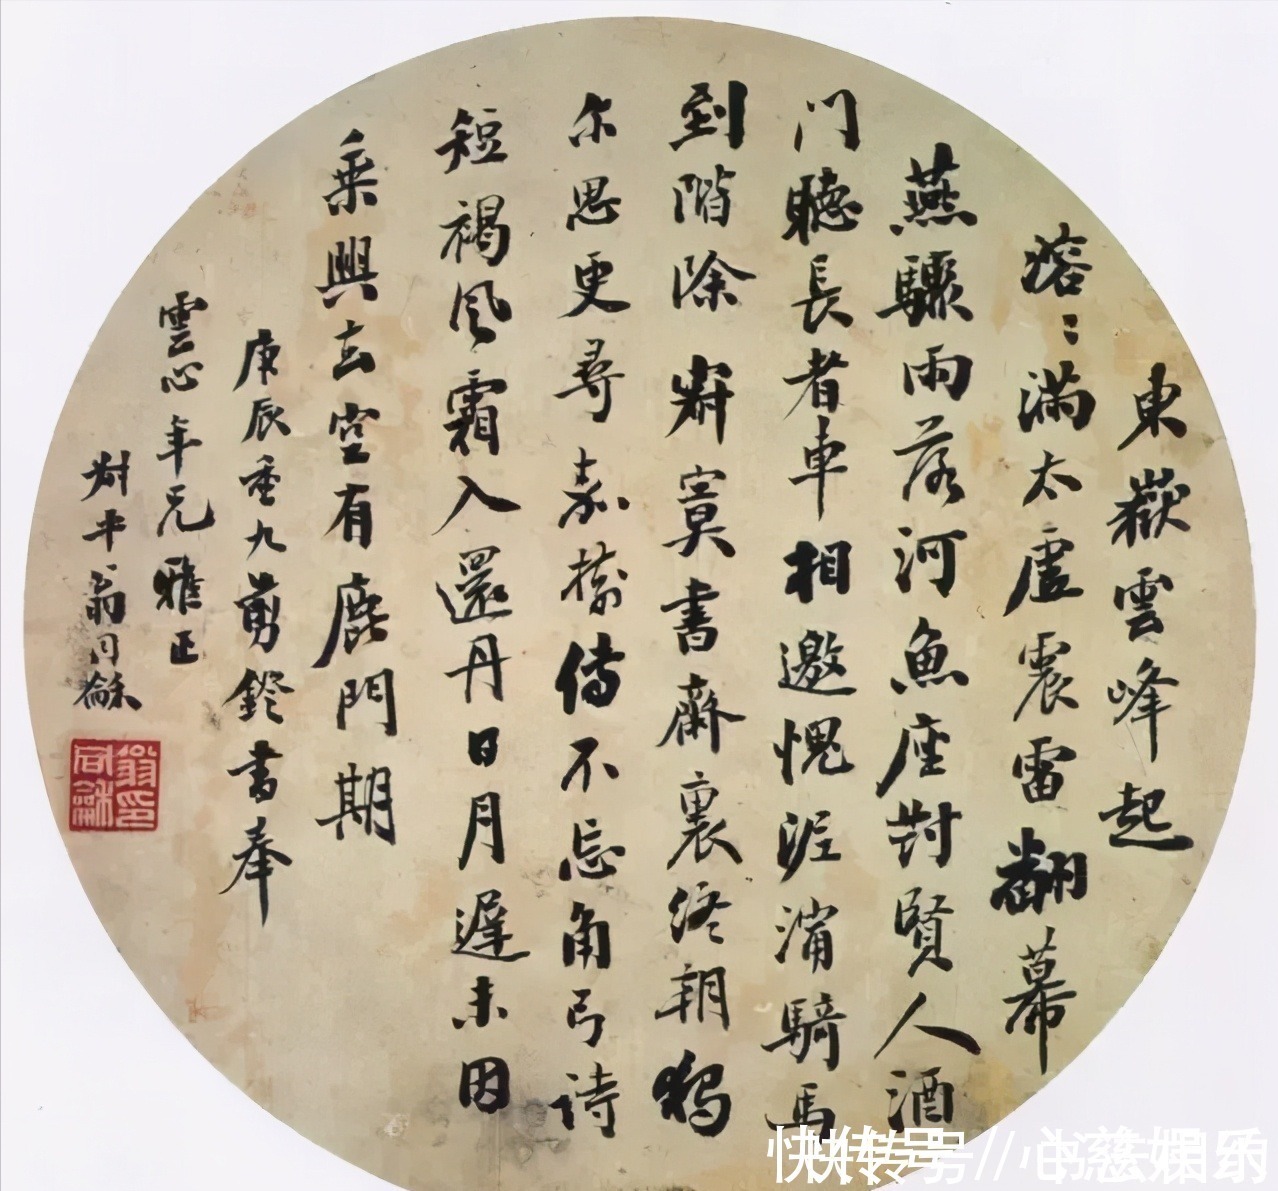 東嶽雲峰起
溶〻滿太虛震雷翻幕
燕驟雨落河魚座對賢人酒
門聽長者車相邀愧泥濘騎馬
到階除 寂寞書齋裏終朝獨
尔思更尋嘉樹傳不忘角弓詩
短褐風霜入還丹日月遲未因
乘興去空有鹿門期
庚辰重九剪鐙書奉
雲心年兄雅正
尌平翁同龢
翁同龢印
快转号//